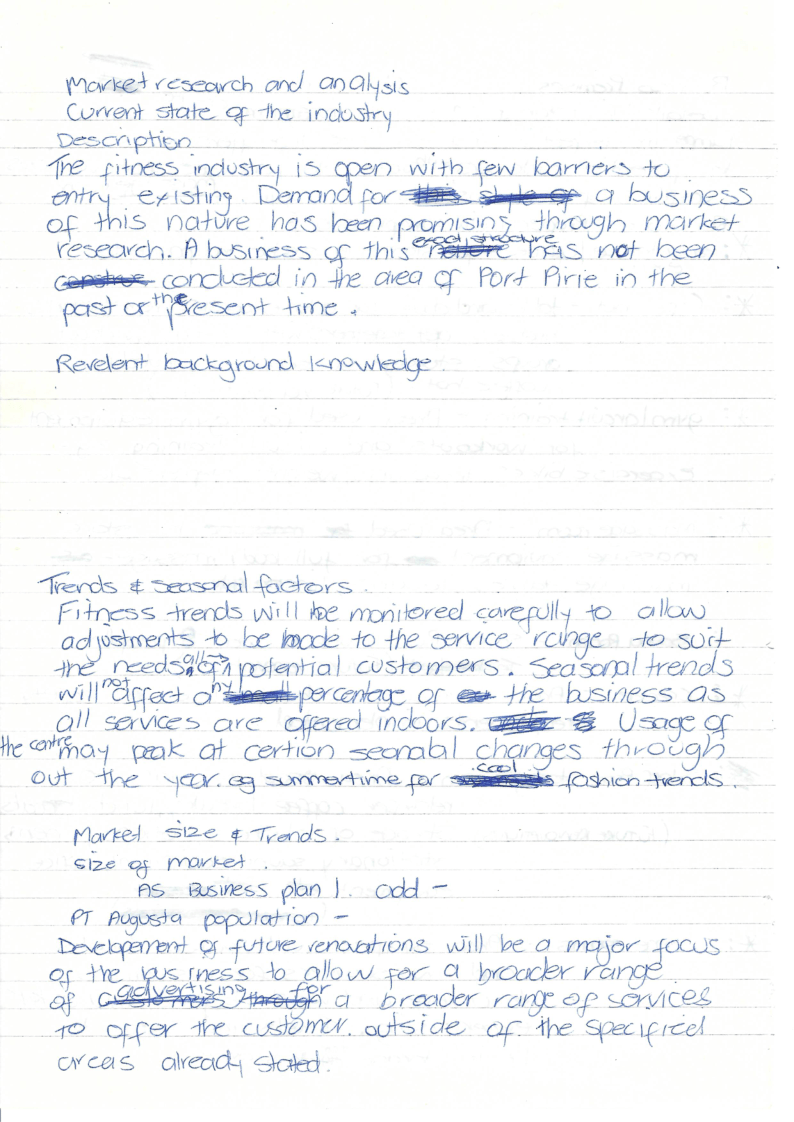 Market research and analysis
Current state of the industry
Description
The fitness industry is open with few barriers to
entry existing. Demand for a business
of this nature has been promising through market
research. A business of this exact structure has not been
conducted in the area of Port Pirie in the
past or the present time.
Revelent background knowledge
Trends & seasonal factors.
Fitness trends will be monitored carefully to allow
adjustments to be made to the service range to suit
the needs of all potential customers. Seasonal trends
will not affect any percentage of the business as
all services are offered indoors. Usage of
the centre may peak at certion seonabal changes through
out the year. eg summertime for cool fashion trends.
Market size & Trends.
size of market.
AS Business plan 1. add -
PT Augusta population -
Developement of future renovations will be a major focus
of the business to allow for a broader range
of advertising for a broader range of services
to offer the customer. outside of the specified
areas already stated.